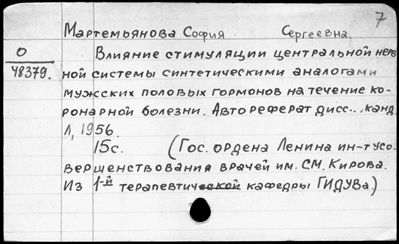 7
Мартемьянова София Сергеевна.
О
48379.
Влияние стимуляции центральной нерв
ной системы синтетическими аналогами
мужских половых гормонов на течение ко-
ронарной болезни. Автореферат дисс... канд.
Л, 1956.
15с. (Гос. ордена Ленина ин-т усо.
вершенствования врачей им. С.М. Кирова.
Из 1-й терапевтической кафедры ГИДУВа.)